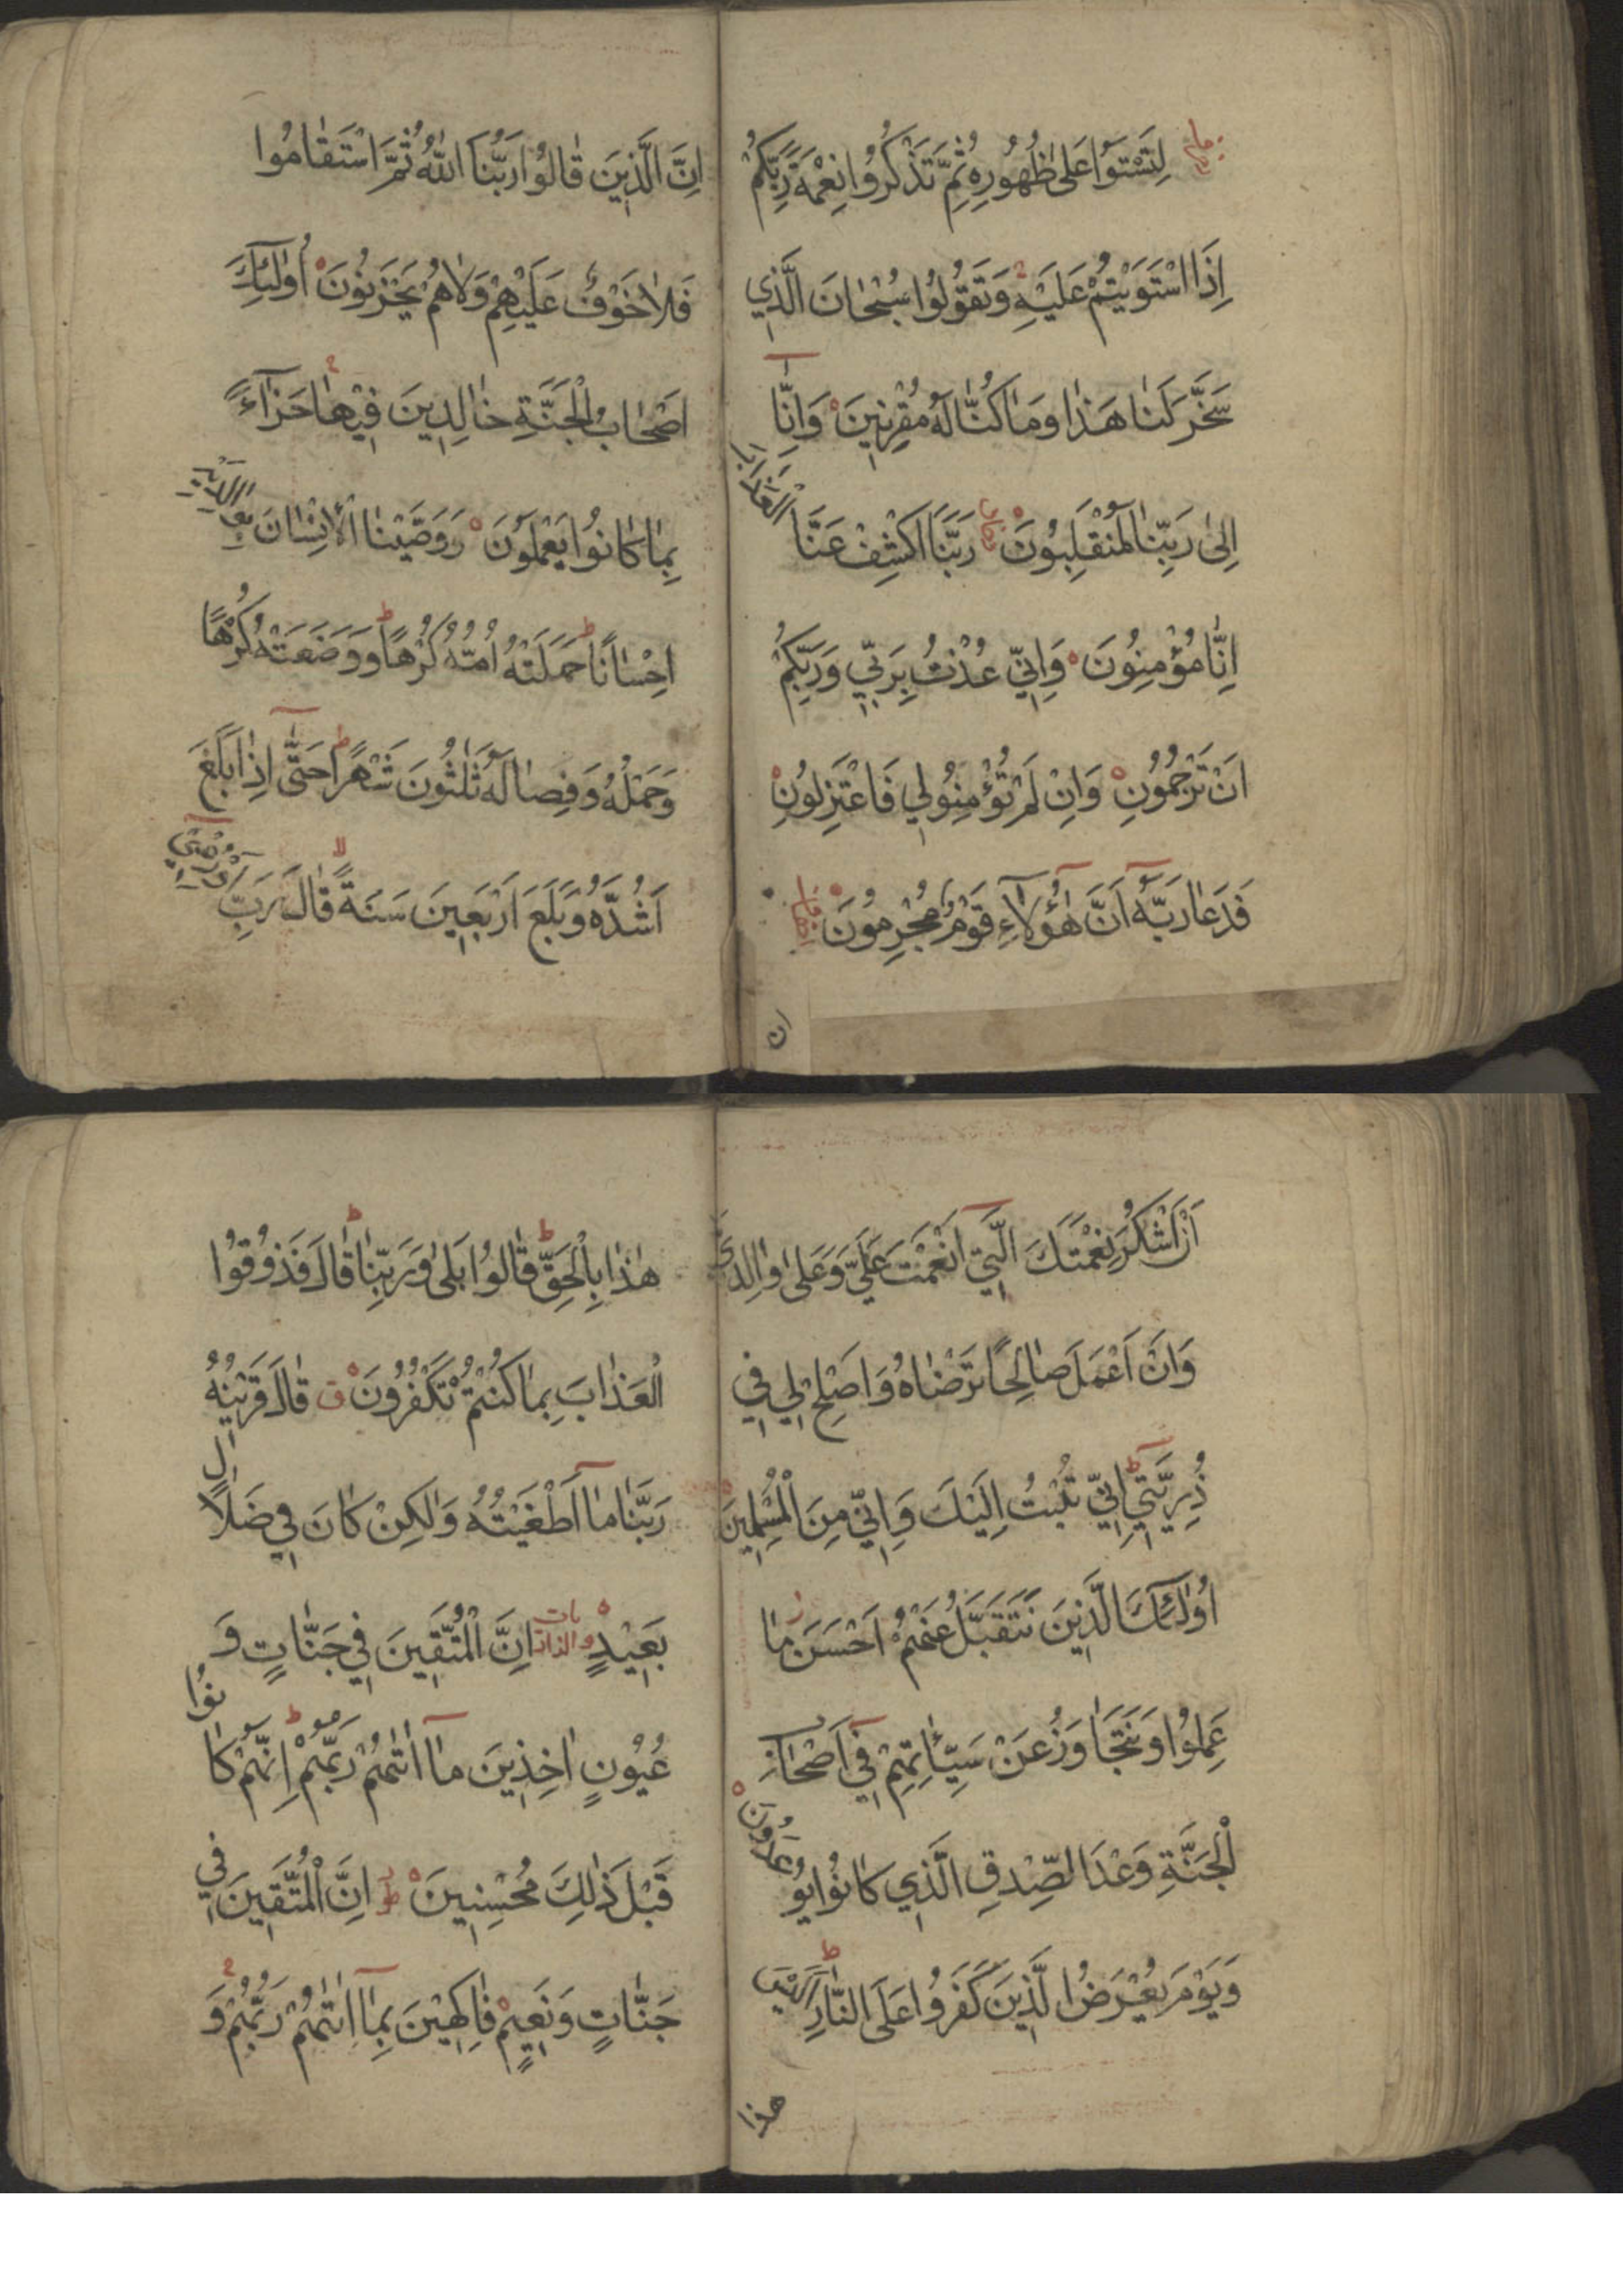 لِتَسْتَوُا عَلَىٰ ظُهُورِهِ ثُمَّ تَذْكُرُوا نِعْمَةَ رَبِّكُمْ
اِذَا اسْتَوَيْتُمْ عَلَيْهِ وَتَقُولُوا سُبْحَانَ الَّذِي
سَخَّرَ لَنَا هَذَا وَمَا كُنَّا لَهُ مُقْرِنِينَ وَاِنَّا
اِلَىٰ رَبِّنَا لَمُنْقَلِبُونَ رَبَّنَا اكْشِفْ عَنَّا الْعَذَابَ
اِنَّا مُؤْمِنُونَ وَاِنِّي عُذْتُ بِرَبِّي وَرَبِّكُمْ
اَنْ تَرْجُمُونِ وَاِنْ لَمْ تُؤْمِنُوا لِي فَاعْتَزِلُونِ
فَدَعَا رَبَّهُ اَنَّ هٰؤُلَاءِ قَوْمٌ مُجْرِمُونَ
ان
اِنَّ الَّذِينَ قَالُوا رَبُّنَا اللّٰهُ ثُمَّ اسْتَقَامُوا
فَلَا خَوْفٌ عَلَيْهِمْ وَلَا هُمْ يَحْزَنُونَ اُولٰئِكَ
اَصْحَابُ الْجَنَّةِ خَالِدِينَ فِيهَا جَزَاءً
بِمَا كَانُوا يَعْمَلُونَ وَوَصَّيْنَا الْاِنْسَانَ بِوَالِدَيْهِ
اِحْسَانًا حَمَلَتْهُ اُمُّهُ كُرْهًا وَوَضَعَتْهُ كُرْهًا
وَحَمْلُهُ وَفِصَالُهُ ثَلٰثُونَ شَهْرًا حَتَّى اِذَا بَلَغَ
اَشُدَّهُ وَبَلَغَ اَرْبَعِينَ سَنَةً قَالَ رَبِّ اَوْزِعْنِي
اَنْ اَشْكُرَ نِعْمَتَكَ الَّتِي اَنْعَمْتَ عَلَيَّ وَعَلَىٰ وَالِدَيَّ
وَاَنْ اَعْمَلَ صَالِحًا تَرْضَاهُ وَاَصْلِحْ لِي فِي
ذُرِّيَّتِي اِنِّي تُبْتُ اِلَيْكَ وَاِنِّي مِنَ الْمُسْلِمِينَ
اُولٰئِكَ الَّذِينَ نَتَقَبَّلُ عَنْهُمْ اَحْسَنَ مَا
عَمِلُوا وَنَتَجَاوَزُ عَنْ سَيِّئَاتِهِمْ فِي اَصْحَابِ
الْجَنَّةِ وَعْدَ الصِّدْقِ الَّذِي كَانُوا يُوعَدُونَ
وَيَوْمَ يُعْرَضُ الَّذِينَ كَفَرُوا عَلَى النَّارِ اَلَيْسَ
هذا
هٰذَا بِالْحَقِّ قَالُوا بَلَىٰ وَرَبِّنَا قَالَ فَذُوقُوا
الْعَذَابَ بِمَا كُنْتُمْ تَكْفُرُونَ ق قَالَ قَرِينُهُ
رَبَّنَا مَا اَطْغَيْتُهُ وَلٰكِنْ كَانَ فِي ضَلَالٍ
بَعِيدٍ والذاريات اِنَّ الْمُتَّقِينَ فِي جَنَّاتٍ وَ
عُيُونٍ اٰخِذِينَ مَا اٰتٰيهُمْ رَبُّهُمْ اِنَّهُمْ كَانُوا
قَبْلَ ذٰلِكَ مُحْسِنِينَ اِنَّ الْمُتَّقِينَ فِي
جَنَّاتٍ وَنَعِيمٍ فَاكِهِينَ بِمَا اٰتٰيهُمْ رَبُّهُمْ وَ